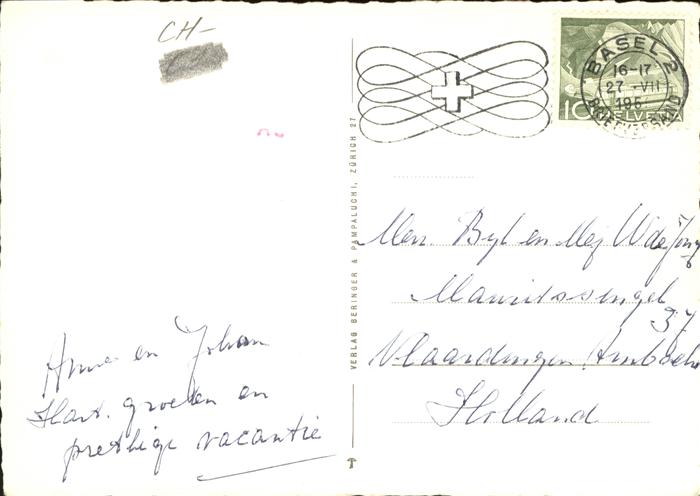 CH-
BASEL 2
16-17
27.-VII
195
BRIEFVERSAND
10 HELVETIA
VERLAG BERINGER & PAMPALUCHI, ZÜRICH 27
Byl en Mej W de Jong
Mauritssingel
37
Vlaardingen Ambacht
Holland
Anne en Johan
Hart. groeten en
prettige vacantie